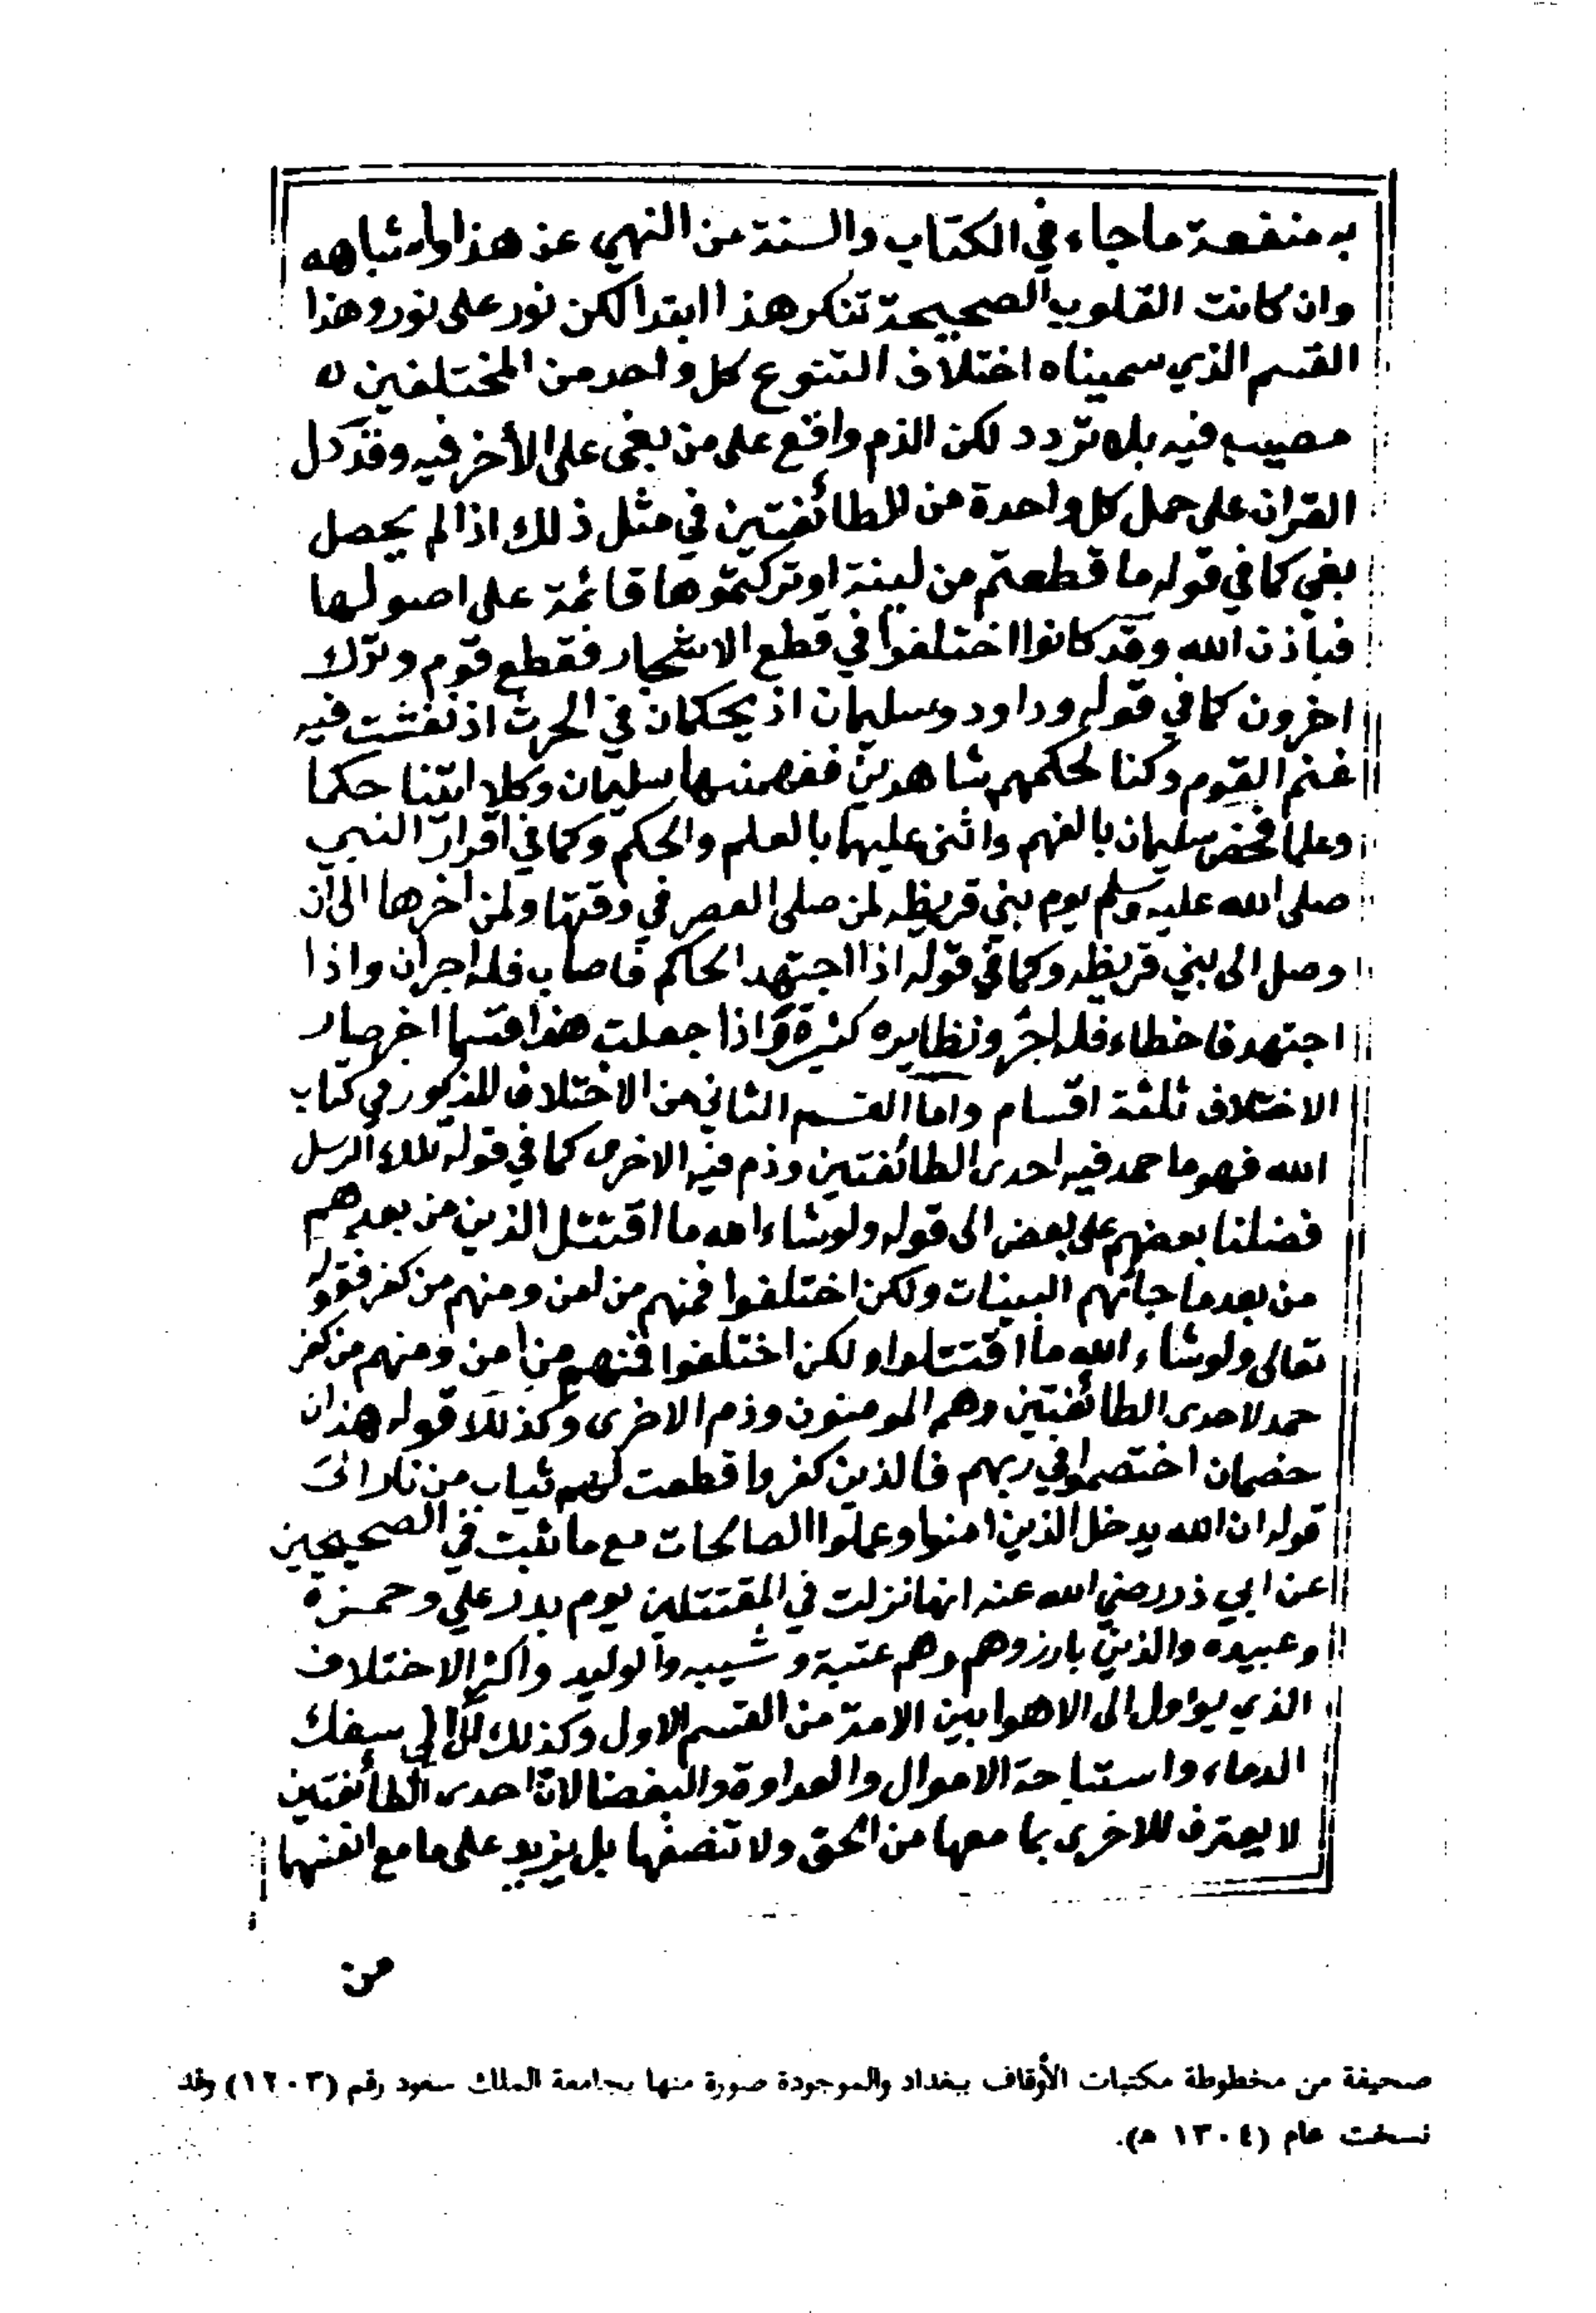 به منفعة ما جاء في الكتاب والسنة من النهي عن هذا واشباهه
وان كانت القلوب الصحيحة تنكر هذا ابتدا لكن نور على نور وهذا
القسم الذي سميناه اختلاف التنوع كل واحد من المختلفين
مصيب فيه بلا تردد لكن الذم واقع على من بغى على الأخر فيه وقد دل
القران على حمل كل واحدة من الطائفتين في مثل ذلك اذا لم يحصل
بغي كما في قوله ما قطعتم من لينة او تركتموها قائمة على اصولها
فباذن الله وقد كانوا اختلفوا في قطع الاشجار فقطع قوم وترك
اخرون كما في قوله وداود وسليمان اذ يحكمان في الحرث اذ نفشت فيه
غنم القوم وكنا لحكمهم شاهدين ففهمنها سليمان وكلا اتينا حكما
وعلما فخص سليمان بالفهم واثنى عليهما بالعلم والحكم وكما في اقرار النبي
صلى الله عليه وسلم يوم بني قريظه لمن صلى العصر في وقتها ولمن اخرها الى ان
وصل الى بني قريظه وكما في قوله اذا اجتهد الحاكم فاصاب فله اجران واذا
اجتهد فاخطاء فله اجر ونظايره كثيرة واذا جعلت هذا قسما اخر صار
الاختلاف ثلثة اقسام واما القسم الثاني من الاختلاف المذكور في كتاب
الله فهو ما حمد فيه احدى الطائفتين وذم فيه الاخرى كما في قوله تلك الرسل
فضلنا بعضهم على بعض الى قوله ولو شاء الله ما اقتتل الذين من بعدهم
من بعد ما جاتهم البينات ولكن اختلفوا فمنهم من امن ومنهم من كفر فقوله
تعالى ولو شاء الله ما اقتتلوا ولكن اختلفوا فمنهم من امن ومنهم من كفر
حمد لاحدى الطائفتين وهم المومنون وذم الاخرى وكذلك قوله هذان
خصمان اختصموا في ربهم فالذين كفروا قطعت لهم ثياب من نار الى
قوله ان الله يدخل الذين امنوا وعملوا الصالحات مع ما ثبت في الصحيحين
عن ابي ذر رضي الله عنه انها نزلت في المقتتلين يوم بدر علي وحمزة
وعبيده والذين بارزوهم وهم عتبة وشيبه والوليد واكثر الاختلاف
الذي يؤول الى الاهوا بين الامة من القسم الاول وكذلك الى سفك
الدماء واستباحة الاموال والعداوة والبغضا لان احدى الطائفتين
لا يعترف للاخرى بما معها من الحق ولا تنصفها بل يزيد على ما مع انفسها
من
صحيفة من مخطوطة مكتبات الأوقاف ببغداد والموجودة صورة منها بجامعة الملك سعود رقم (١٢٠٣) وقد
نسخت عام (١٣٠٤ ه).